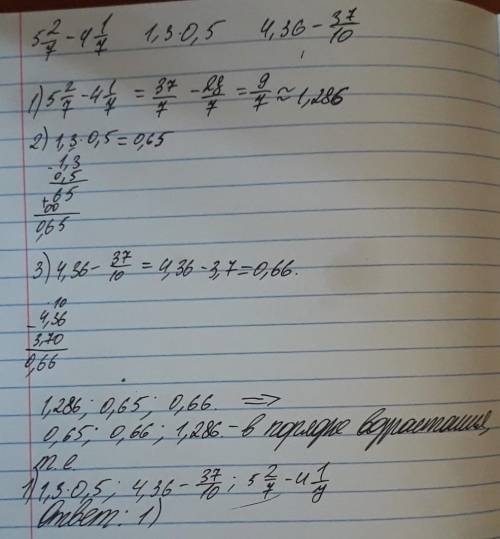 5 2/7 - 4 1/7   1,3·0,5   4,36 - 37/10
1) 5 2/7 - 4 1/7 = 37/7 - 28/7 = 9/7 ≈ 1,286
2) 1,3·0,5 = 0,65
1,3
0,5
+ 65
00
0,65
3) 4,36 - 37/10 = 4,36 - 3,7 = 0,66.
·10
- 4,36
3,70
0,66
1,286; 0,65; 0,66. ⇒
0,65; 0,66; 1,286 - в порядке возрастания,
т.е.
1) 1,3·0,5; 4,36 - 37/10; 5 2/7 - 4 1/7
Ответ: 1)